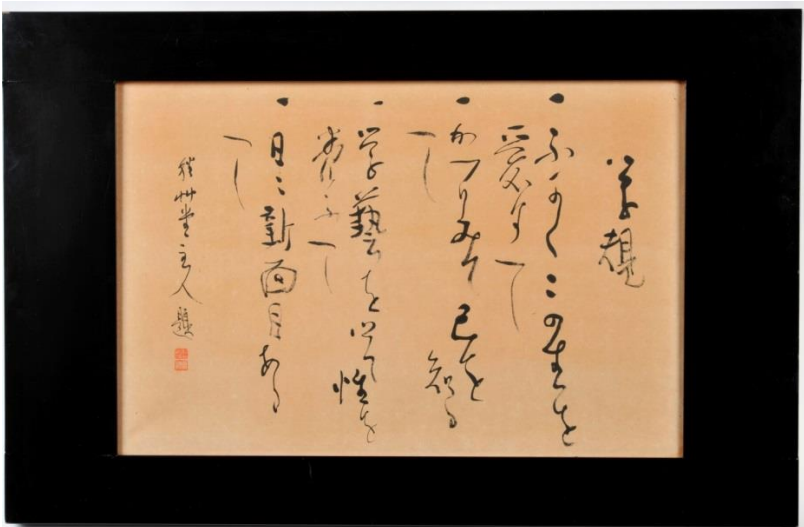 学規
一ふかくこの生を
愛すへし
一かへりみて己を知る
へし
一学藝を以て性を
養ふへし
一日々新面目ある
へし
秋艸堂主人題